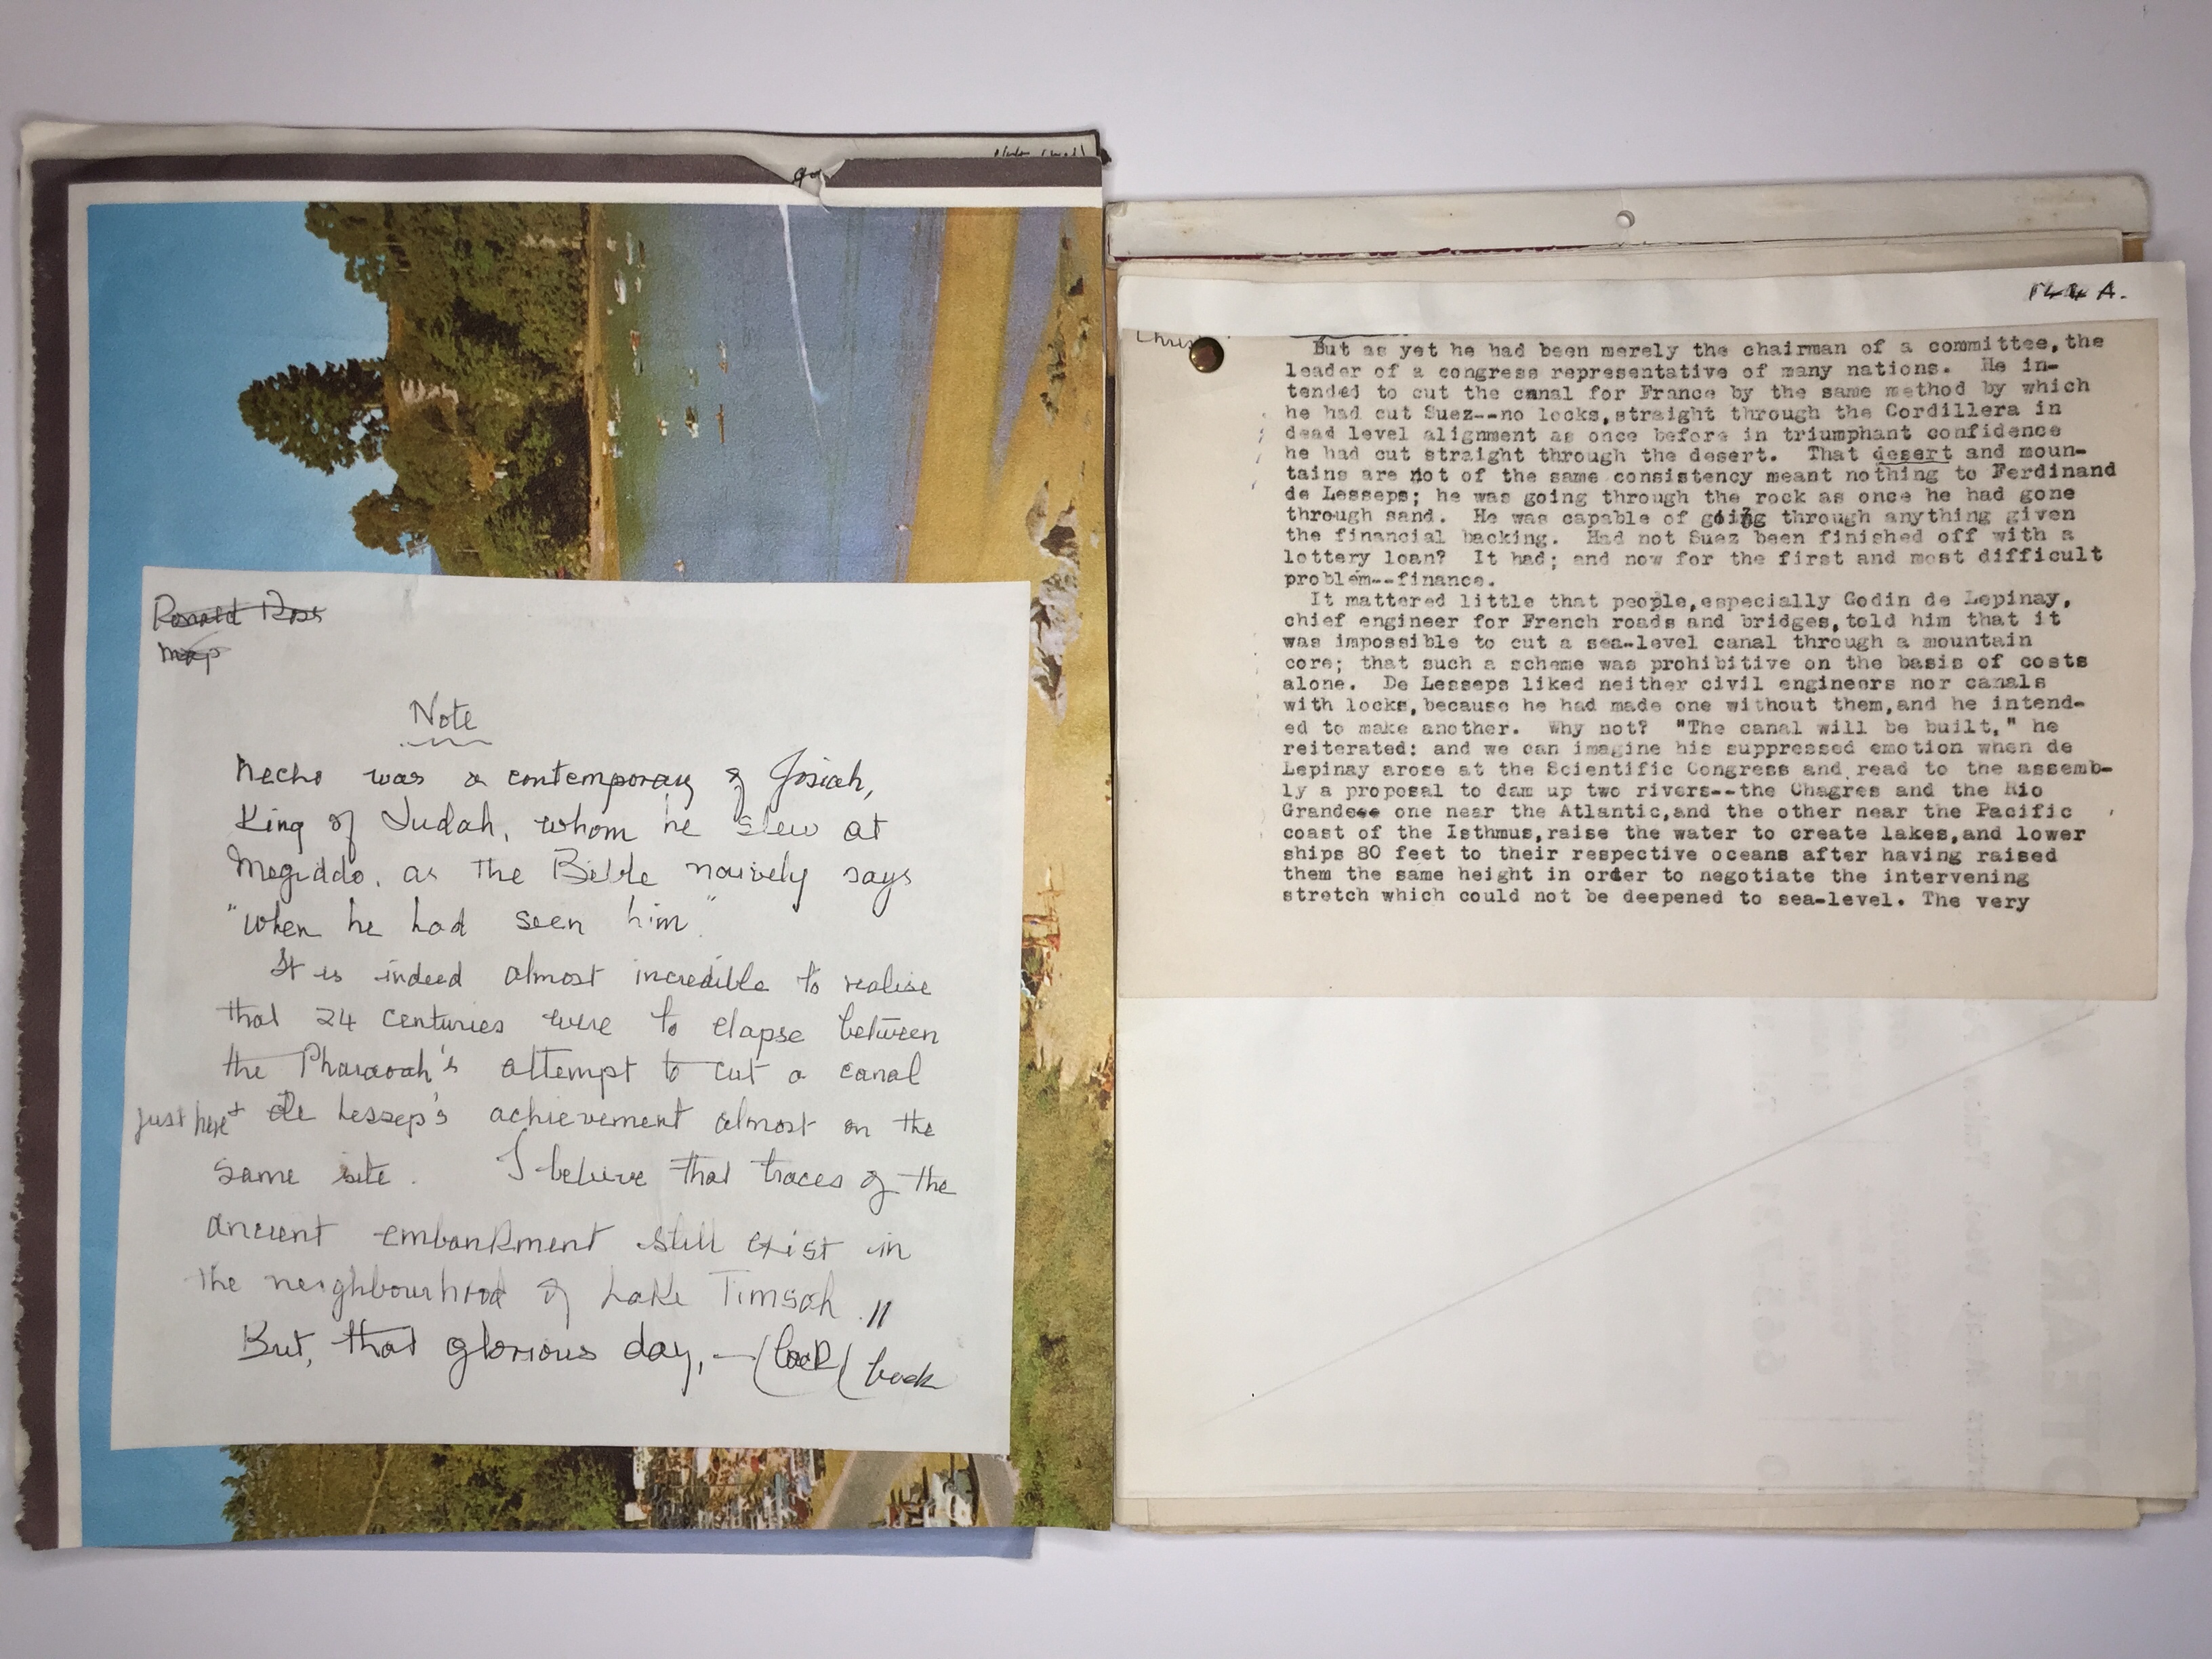 Ronald Ross
Map
Note
Necho was a contemporary of Josiah,
King of Judah, whom he slew at
Megiddo, as the Bible naively says
"when he had seen him"
It is indeed almost incredible to realise
that 24 centuries were to elapse between
the Pharaoah's attempt to cut a canal
just here + de Lessep's achievement almost on the
same site. I believe that traces of the
ancient embankment still exist in
the neighbourhood of Lake Timsah.//
But, that glorious day, — (back( back
A.
But as yet he had been merely the chairman of a committee, the
leader of a congress representative of many nations. He in-
tended to cut the canal for France by the same method by which
he had cut Suez--no locks, straight through the Cordillera in
dead level alignment as once before in triumphant confidence
he had cut straight through the desert. That desert and moun-
tains are not of the same consistency meant nothing to Ferdinand
de Lesseps; he was going through the rock as once he had gone
through sand. He was capable of going through anything given
the financial backing. Had not Suez been finished off with a
lottery loan? It had; and now for the first and most difficult
problem--finance.
It mattered little that people, especially Godin de Lepinay,
chief engineer for French roads and bridges, told him that it
was impossible to cut a sea-level canal through a mountain
core; that such a scheme was prohibitive on the basis of costs
alone. De Lesseps liked neither civil engineers nor canals
with locks, because he had made one without them, and he intend-
ed to make another. Why not? "The canal will be built," he
reiterated: and we can imagine his suppressed emotion when de
Lepinay arose at the Scientific Congress and read to the assemb-
ly a proposal to dam up two rivers--the Chagres and the Rio
Grande== one near the Atlantic, and the other near the Pacific
coast of the Isthmus, raise the water to create lakes, and lower
ships 80 feet to their respective oceans after having raised
them the same height in order to negotiate the intervening
stretch which could not be deepened to sea-level. The very